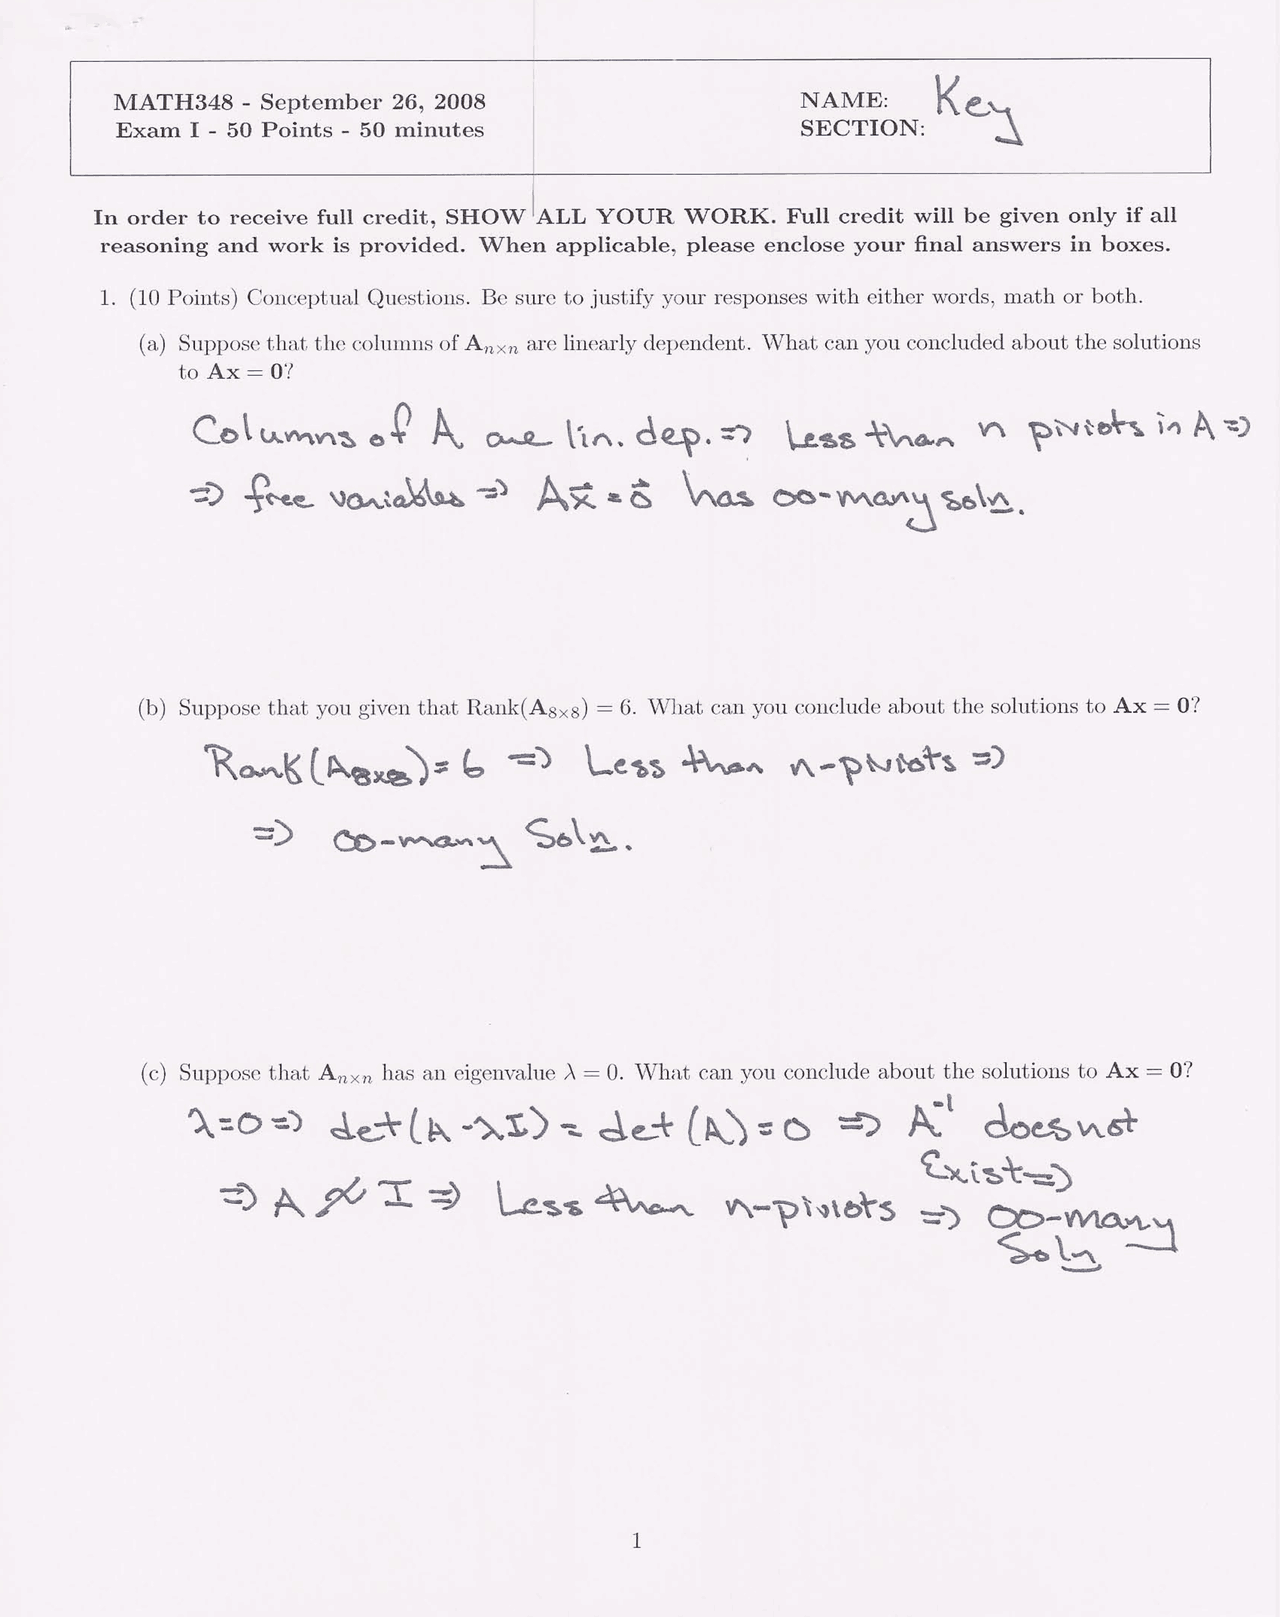 MATH348 - September 26, 2008
Exam I - 50 Points - 50 minutes
NAME: Key
SECTION:
In order to receive full credit, SHOW ALL YOUR WORK. Full credit will be given only if all
reasoning and work is provided. When applicable, please enclose your final answers in boxes.
1. (10 Points) Conceptual Questions. Be sure to justify your responses with either words, math or both.
(a) Suppose that the columns of Aₙₓₙ are linearly dependent. What can you concluded about the solutions
to Ax = 0?
Columns of A are lin. dep. ⇒ Less than n piviots in A ⇒
⇒ free variables ⇒ Ax⃗ = 0⃗ has ∞-many soln.
(b) Suppose that you given that Rank(A₈ₓ₈) = 6. What can you conclude about the solutions to Ax = 0?
Rank(A₈ₓ₈) = 6 ⇒ Less than n-piviots ⇒
⇒ ∞-many Soln.
(c) Suppose that Aₙₓₙ has an eigenvalue λ = 0. What can you conclude about the solutions to Ax = 0?
λ=0 ⇒ det(A-λI) = det(A) = 0 ⇒ A⁻¹ does not
Exist ⇒
⇒ A ≁ I ⇒ Less than n-piviots ⇒ ∞-many
Soln
1